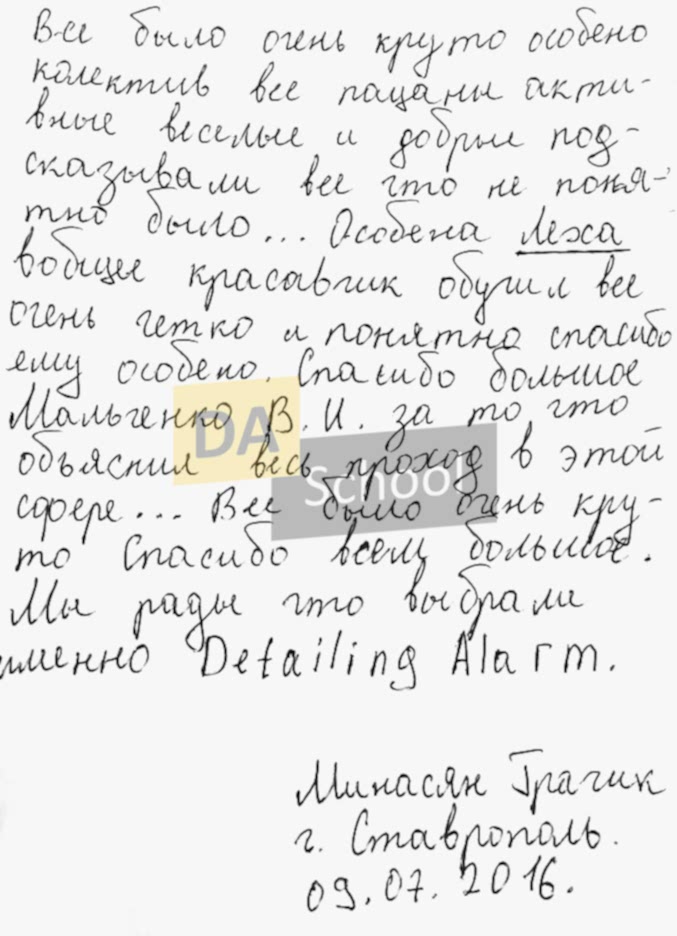 Все было очень круто особено
колектив все пацаны акти-
вные веселые и добрые под-
сказывали все что не поня-
тно было... Особена Леха
вобщее красавчик обучил все
очень четко и понятно спасибо
ему особено. Спасибо большое
Мальченко В.И. за то что
DA
объяснил весь проход в этой
School
сфере... Все было очень кру-
то Спасибо всем большое.
Мы рады что выбрали
именно Detailing Alarm.
Минасян Грачик
г. Ставрополь.
09.07.2016.